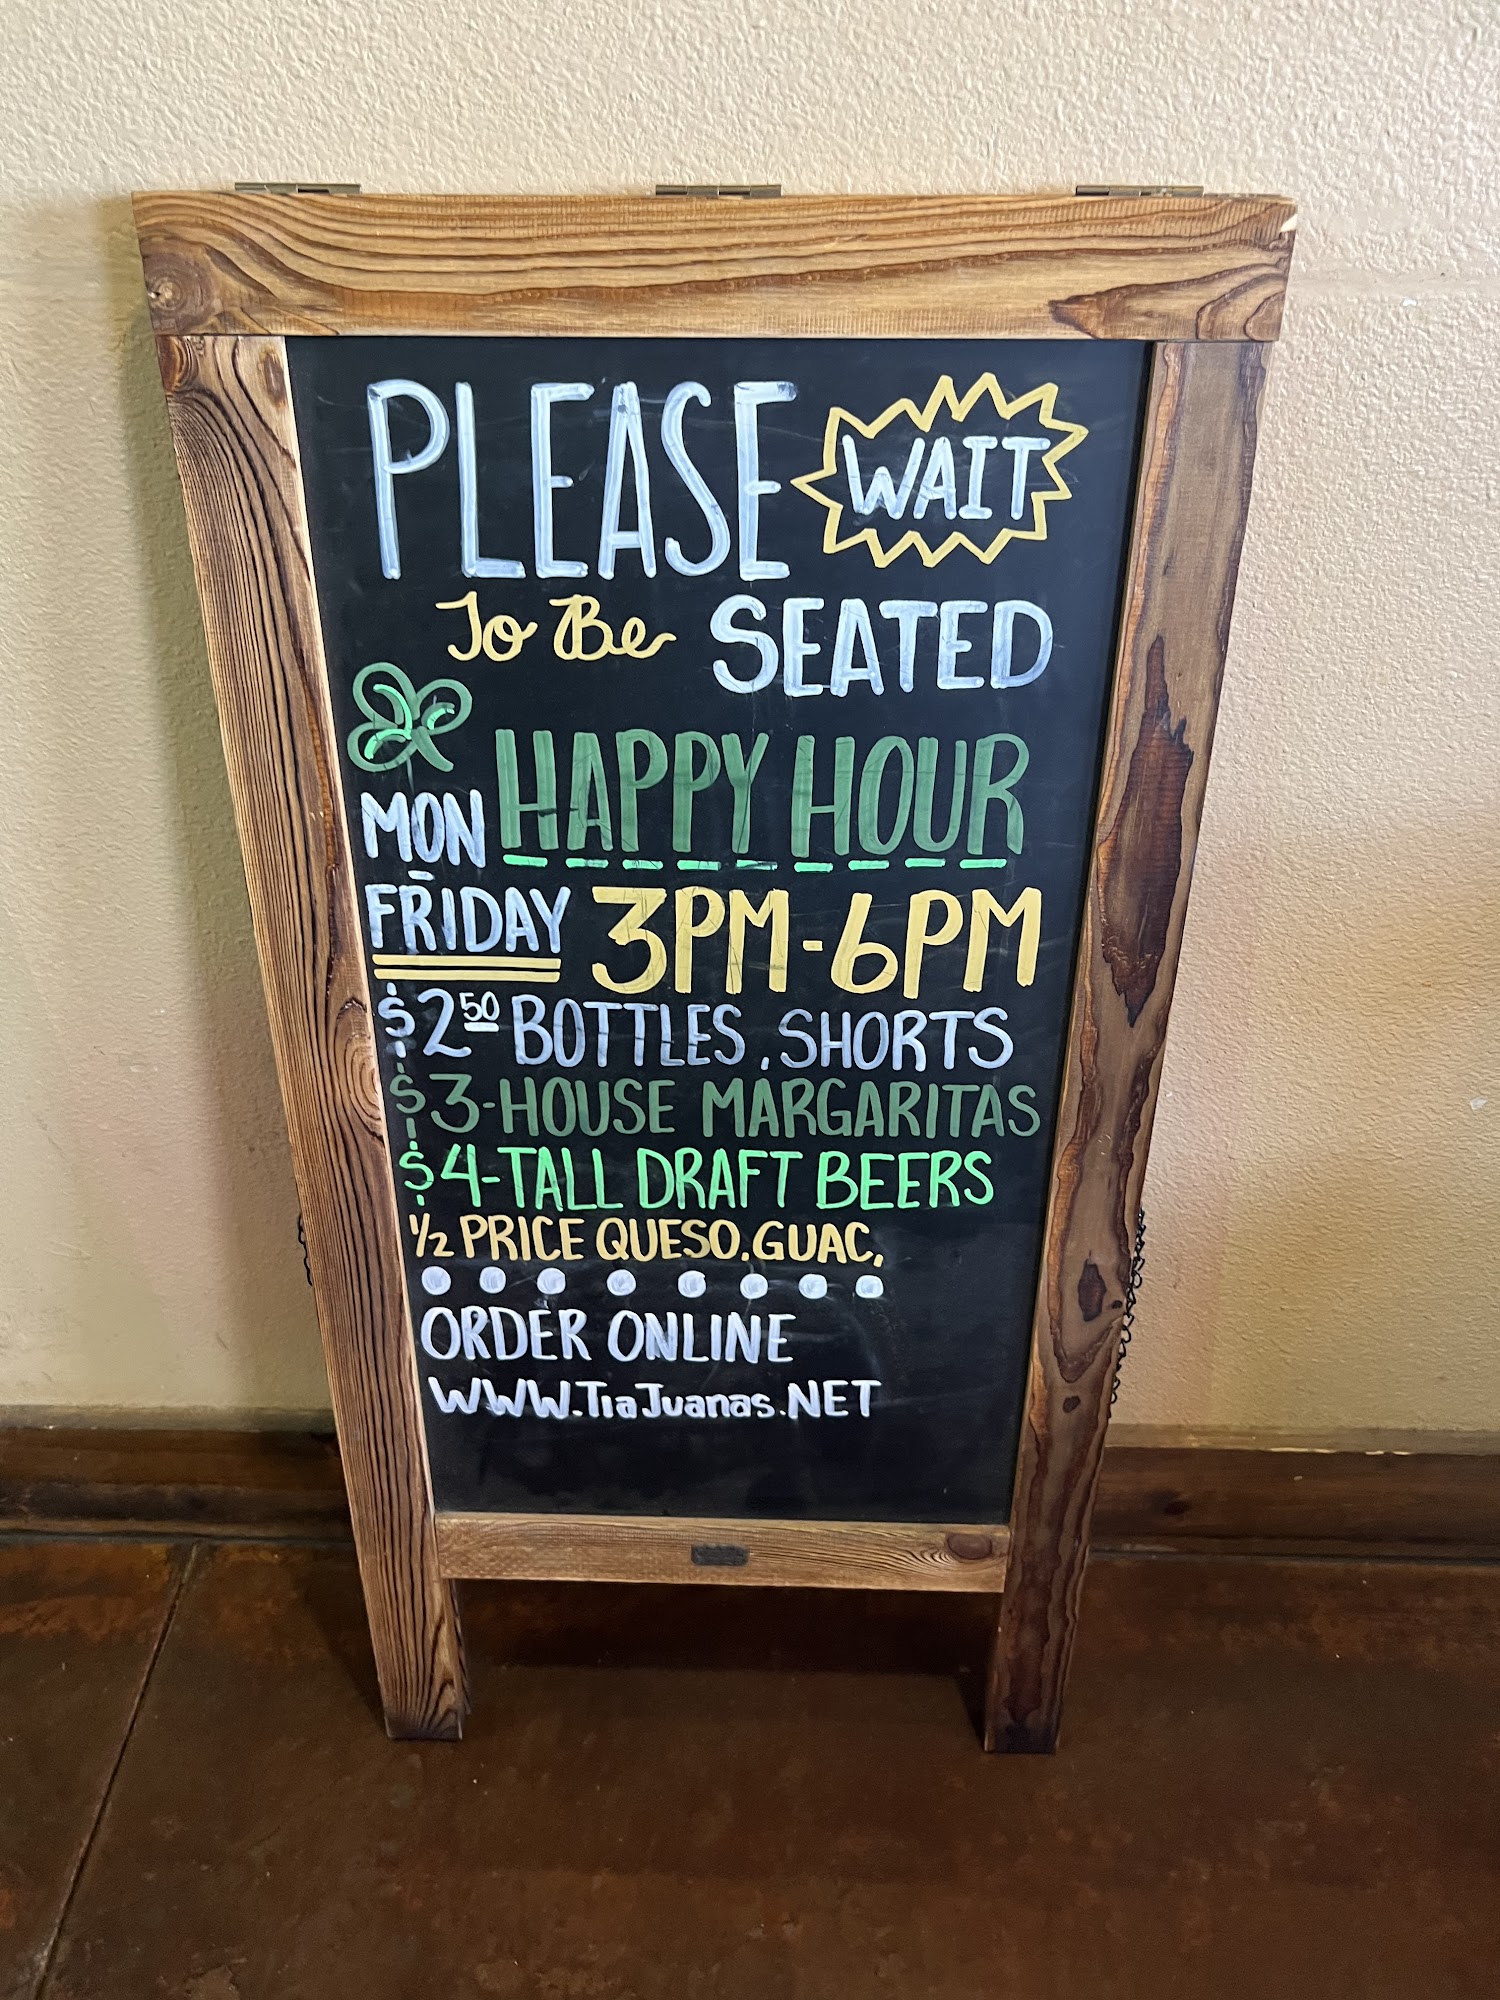 PLEASE WAIT
To Be SEATED
HAPPY HOUR
MON
-
FRIDAY 3PM-6PM
$2.50 BOTTLES, SHORTS
$3-HOUSE MARGARITAS
$4-TALL DRAFT BEERS
1/2 PRICE QUESO, GUAC,
ORDER ONLINE
WWW.TiaJuanas.NET